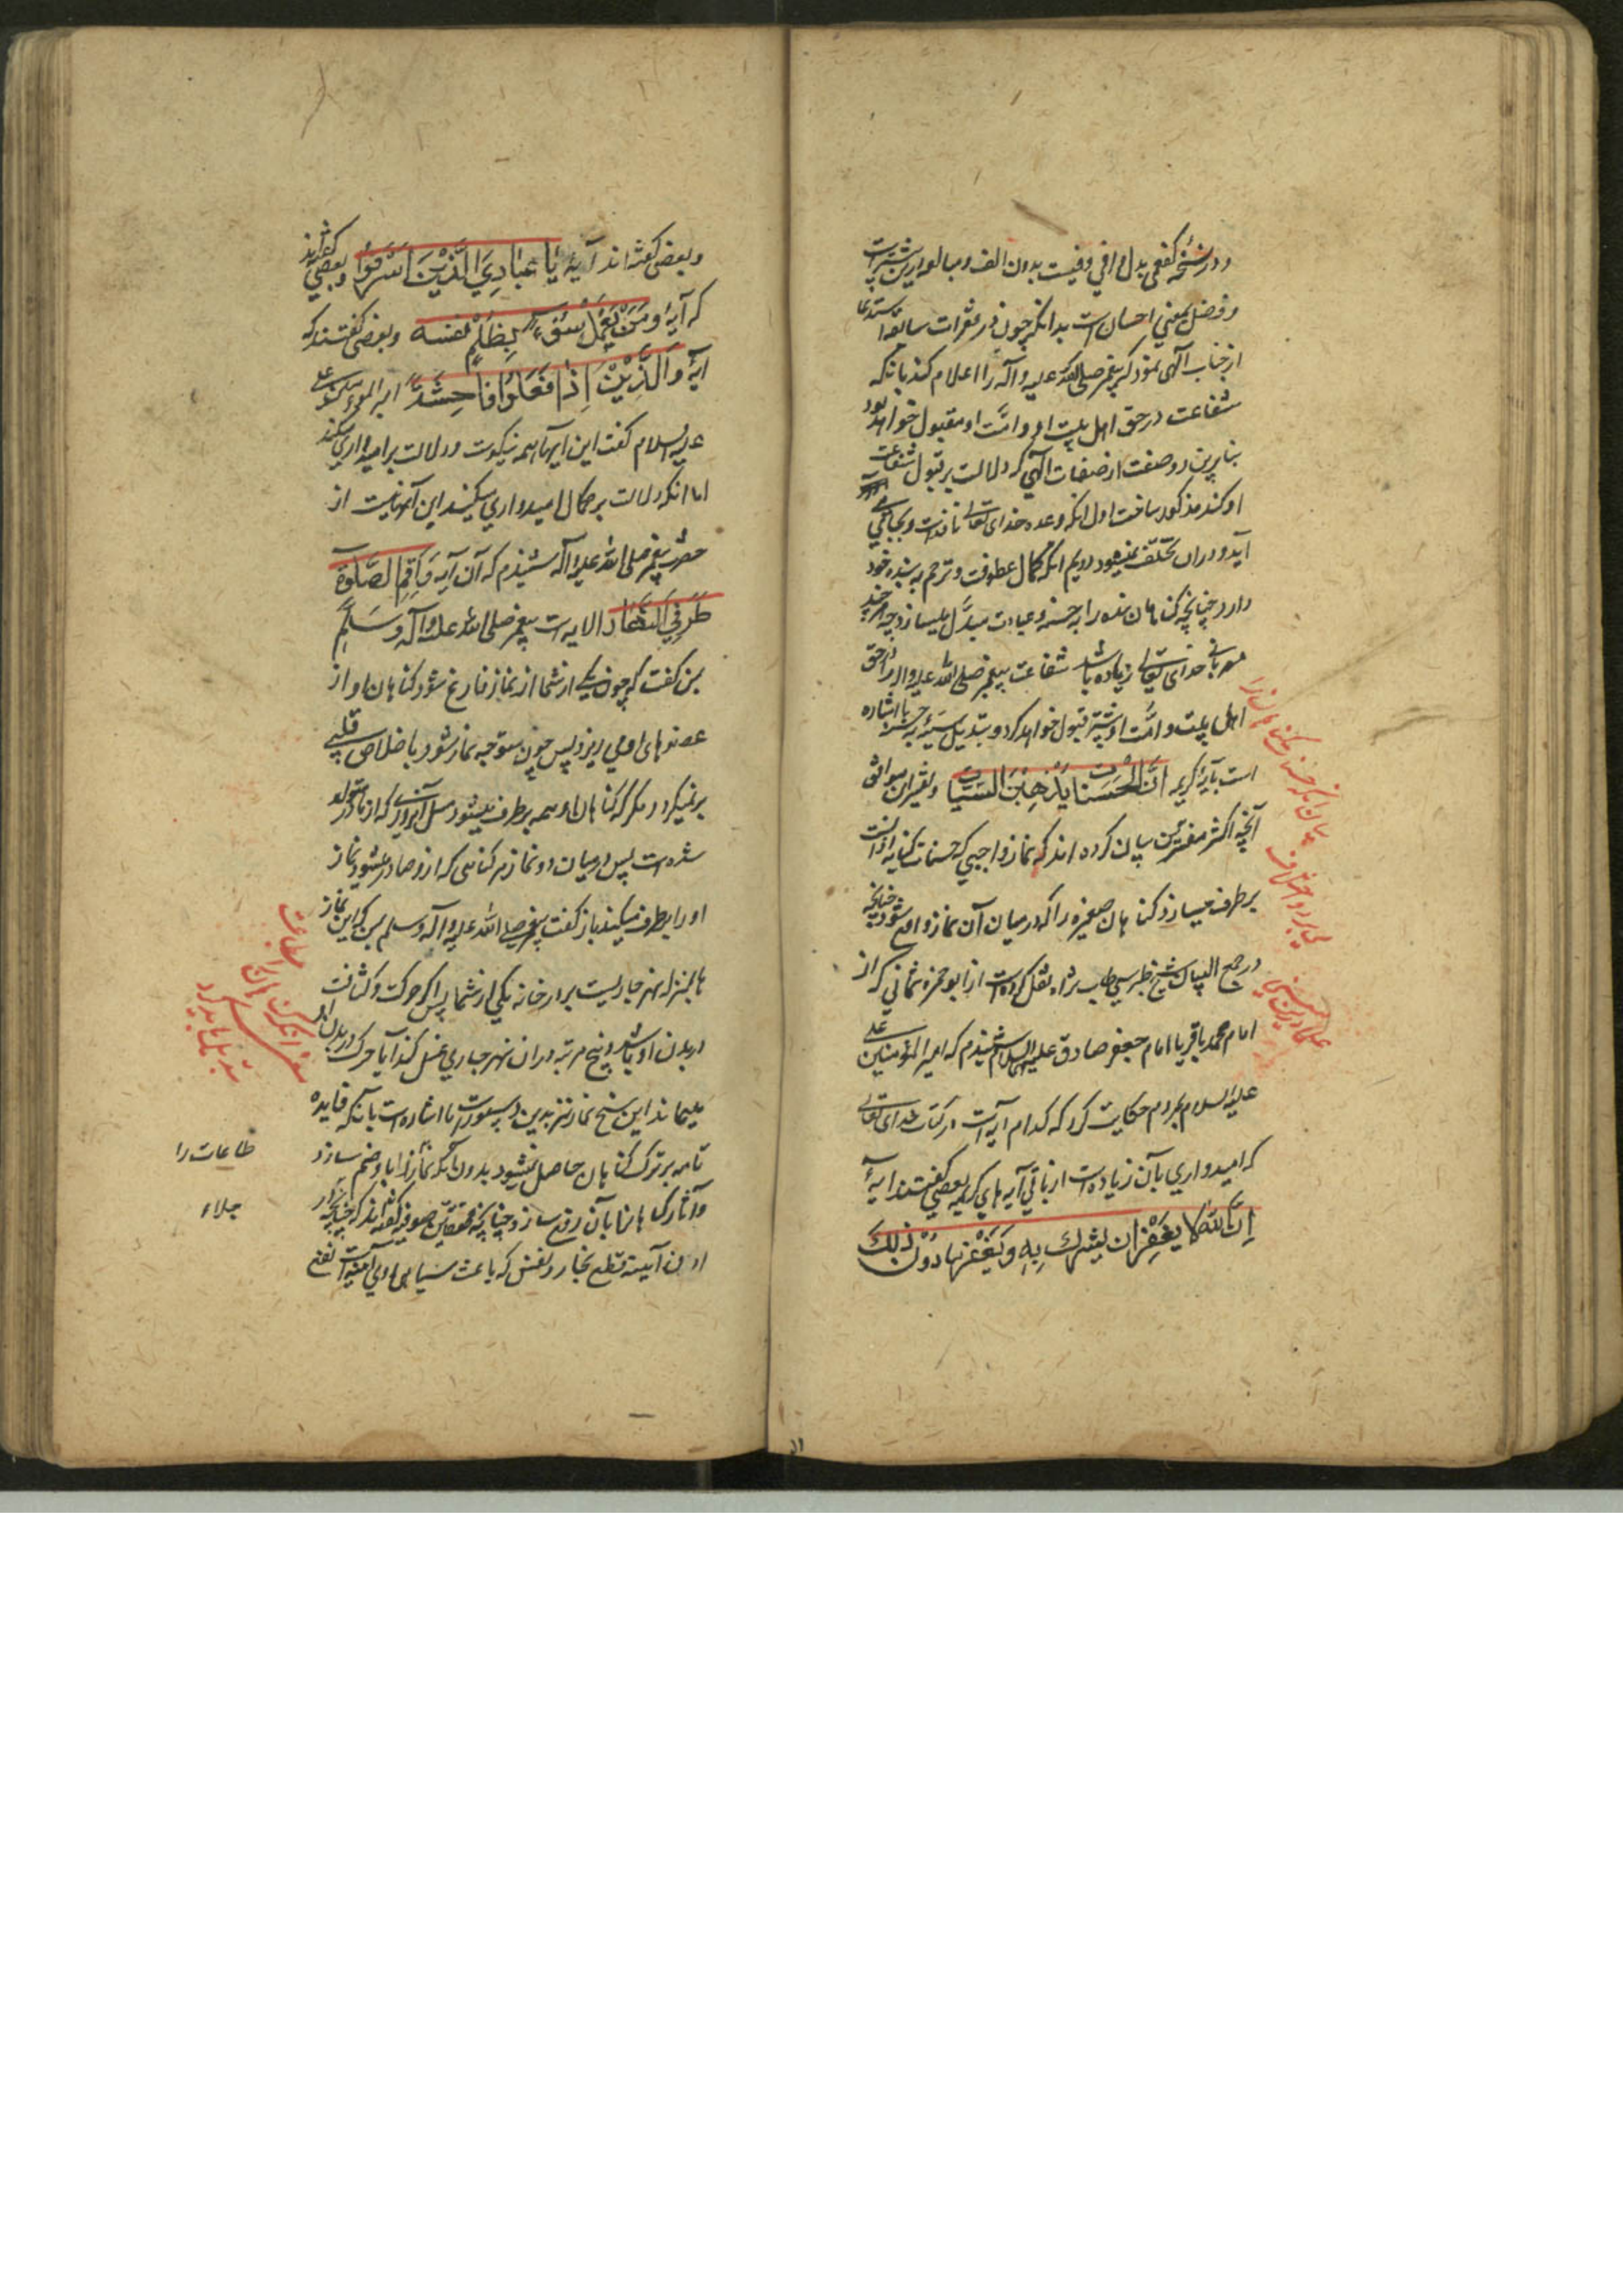 و در نسخه کفعمی بدل وافی وفیست بدون الف و مبالغه درین بیشتر است
و فضل بمعنی احسان است بدانکه چون در فقرات سابقه استدعا
از جناب آلهی نمود که پیغمبر صلی الله علیه و آله را اعلام کند بانکه
شفاعت در حق اهل بیت او و امّت او مقبول خواهد بود
بنابرین دو صفت از صفات آلهی که دلالت بر قبول شفاعت
او کند مذکور ساخت اول آنکه وعده خدای تعالی نافذ است و بجا می
آید و در ان تخلّف نمیشود دویم آنکه کمال عطوفت و ترحم به بنده خود
دارد چنانچه گناهان بنده را به حسنه و عبادت مبدّل میسازد و هر چند
مهربانی خدای تعالی زیاده باشد شفاعت پیغمبر صلی الله علیه و اله در حق
اهل بیت و امّت او بیشتر قبول خواهد کرد و تبدیل سیّئه به حسنه اشاره
است بآیۀ کریمه انّ الحسنات یذهبن السیّات و تفسیر ان موافق
آنچه اکثر مفسّرین بیان کرده اند که نماز واجبی که حسنات کنایه از انست
بر طرف میسازد گناهان صغیره را که در میان آن نماز واقع شود چنانچه
در مجمع البیان شیخ طبرسی طاب ثراه نقل کرده است از ابو حمزه ثمالی که از
امام محمد باقر یا امام جعفر صادق علیهما السلام شنیدم که امیر المؤمنین علی
علیه السلام بمردم حکایت کرد که کدام آیه است در کتاب خدای تعالی
که امیدواری بآن زیاده است از باقی آیه های کریمه بعضی گفتند ایۀ
اِنَّ اللّه لا یغفر ان یشرك بِهِ وَ یَغْفِرُ مَا دُوْنَ ذٰلِكَ
بیان آنکه حسنه گناهان را
می برد و اختلاف
علما در این معنی
و بعضی گفته اند آیۀ یا عِبَادِیَ الَّذِیْنَ اَسْرَفُوا و بعضی گفته اند
که آیۀ وَ مَنْ یَعْمَلْ سُوْءً اَوْ یظلم نفسه و بعضی گفتند که
آیۀ وَ الَّذِیْنَ اِذٰا فَعَلُوا فٰاحِشَةً امیر المؤمنین علی
علیه السلام گفت این ایها همه نیکوست و دلالت بر امیدواری میکند
اما انکه دلالت بر کمال امیدواری میکند این آیها نیست از
حضرت پیغمبر صلی الله علیه و اله شنیدم که آن آیه وَ اَقِمِ الصَّلوٰةَ
طَرَفَیِ النَّهٰار الایه است پیغمبر صلی الله علیه و آله وَ سَلَّمَ
بمن گفت که چون یکی از شما از نماز فارغ شود گناهان او از
عضوهای او می ریزد پس چون متوجه نماز شود با خلاص قلبی
بر نمیگردد مگر که گناهان او همه بر طرف میشود مثل آنروزی که از مادر متولد
شده است پس در میان دو نماز هر گناهی که ازو صادر میشود نماز
او را بر طرف میکند باز گفت پیغمبر صلی الله علیه و آله و سلم بمن که این نماز
ها بمنزله نهر جاریست بر در خانه یکی از شما پس اگر چرکت و کثافت
در بدن او باشد و پنج مرتبه در ان نهر جاری غسل کند آیا چرک در بدن او
میماند این پنج نماز نیز بدین دستور است اما اشاره است بانکه فایده
تامه بر ترک گناهان حاصل نمیشود بدون آنکه نماز را باو ضم سازد
و آثار گناهان را بآن رفع سازد چنانچه محققین صوفیه گفته اند که چنانچه
از من آیینه قطع بخار و نفس که باعث سیاهی روی آیینه است نفع
طاعات را
جلاء